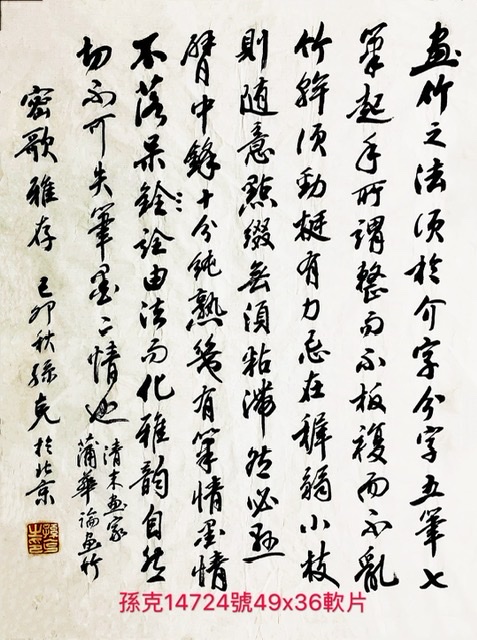 畫竹之法須於介字分字五筆七
筆起手所謂整而不板複而不亂
竹幹須勁挺有力忌在稺弱小枝
則随意點綴無須粘滯然必懸
臂中鋒十分純熟有筆情墨情
不落呆銓詮由法而化雅韻自然
切不可失筆墨之情也
清末畫家
蒲華論畫竹
密歌雅存 己卯秋孫克於北京
孫克14724號49x36軟片